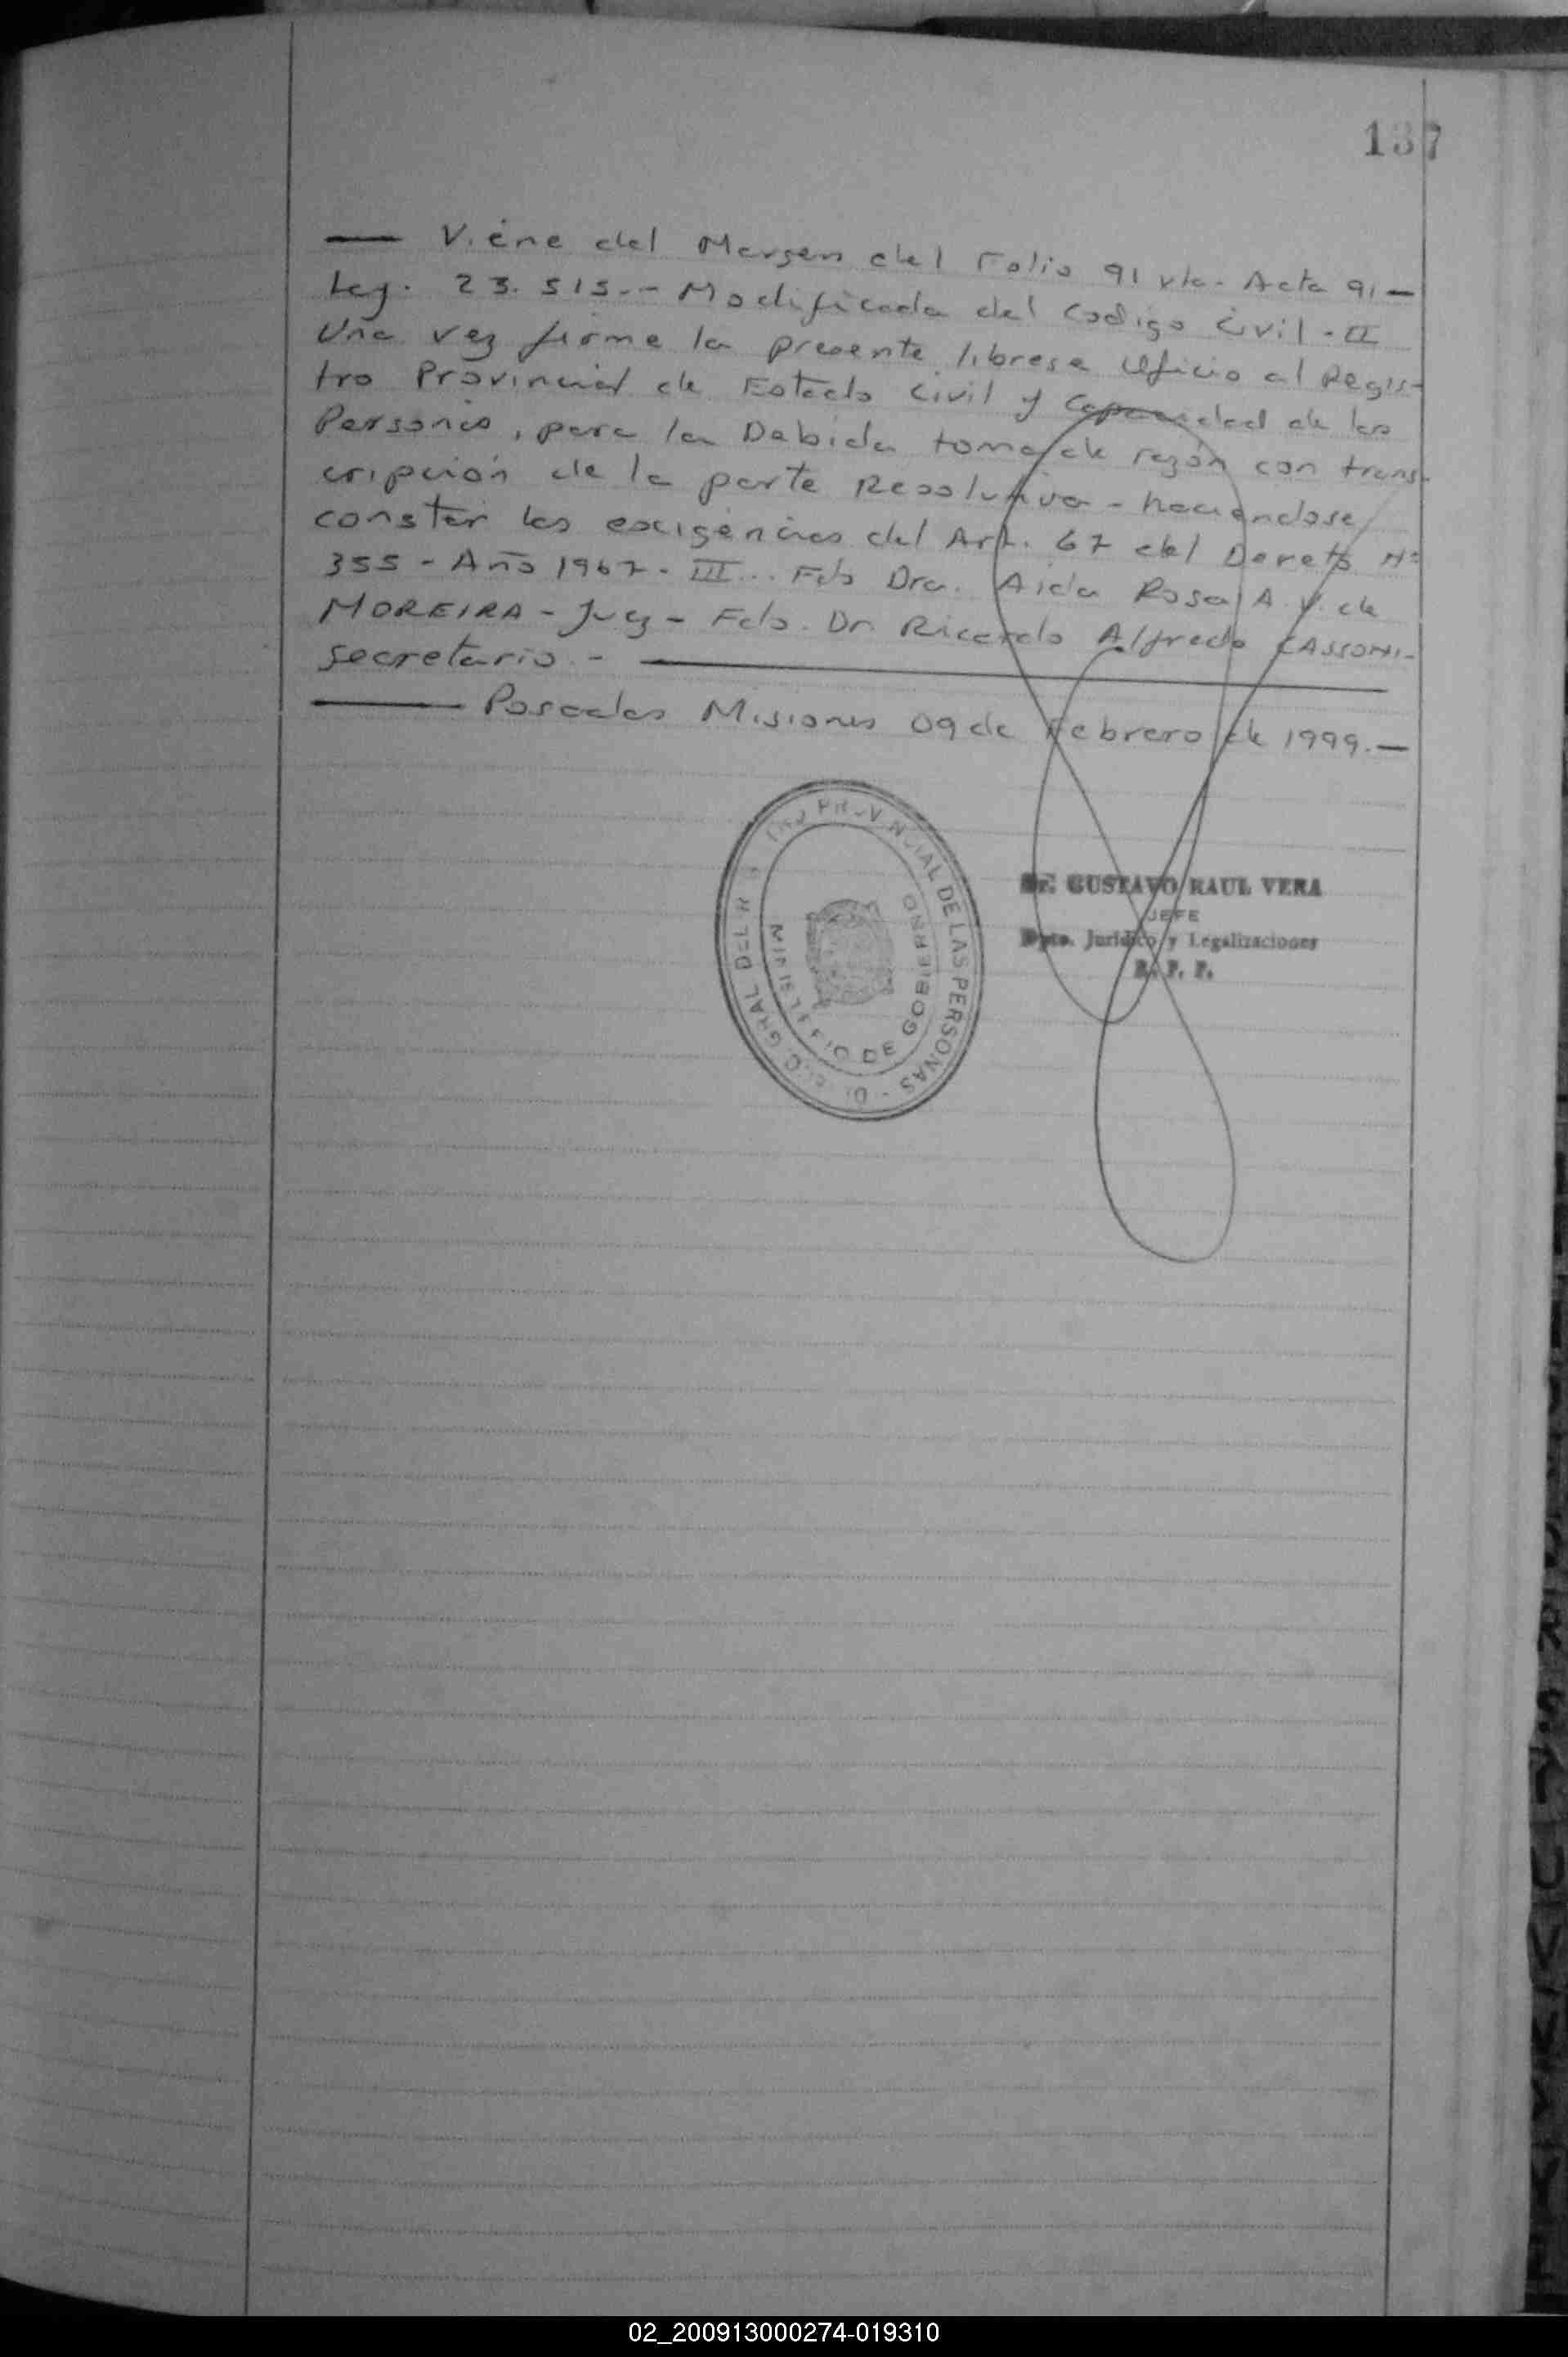 137
— Viene del Margen del Folio 91 vta. Acta 91 —
Ley. 23.515.- Modificada del Codigo Civil - II
Una vez firme la presente librese Oficio al Regis-
tro Provincial de Estado Civil y Capacidad de las
Personas, para la Debida toma de razón con trans-
cripción de la parte Resolutiva - haciendose
constar las exigencias del Art. 67 del Dereto Nº
355 - Año 1967 - III... Fdo Dra. Aida Rosa A. V. de
MOREIRA - Juez - Fdo. Dr. Ricardo Alfredo CASSONI-
Secretario. -
— Posadas Misiones 09 de Febrero de 1999. —
PROVINCIAL DE LAS PERSONAS - GRAL DEL
MINISTERIO DE GOBIERNO
Dr. GUSTAVO RAUL VERA
JEFE
Dpto. Jurídico y Legalizaciones
R. P. P.
02_200913000274-019310